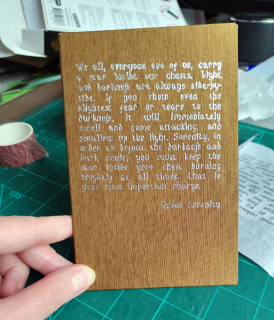 We all, everyone one of us, carry
a star inside our chests. Light
and darkness are always side-by-
side. If you show even the
slightest fear or tears to the
darkness, it will immediately
swell and come attacking, and
swallow up the light. Serenity, in
order to defeat the darkness and
dark souls, you must keep the
star inside your chest burning
brightly at all times. That is
your most important charge.
Queen Serenity